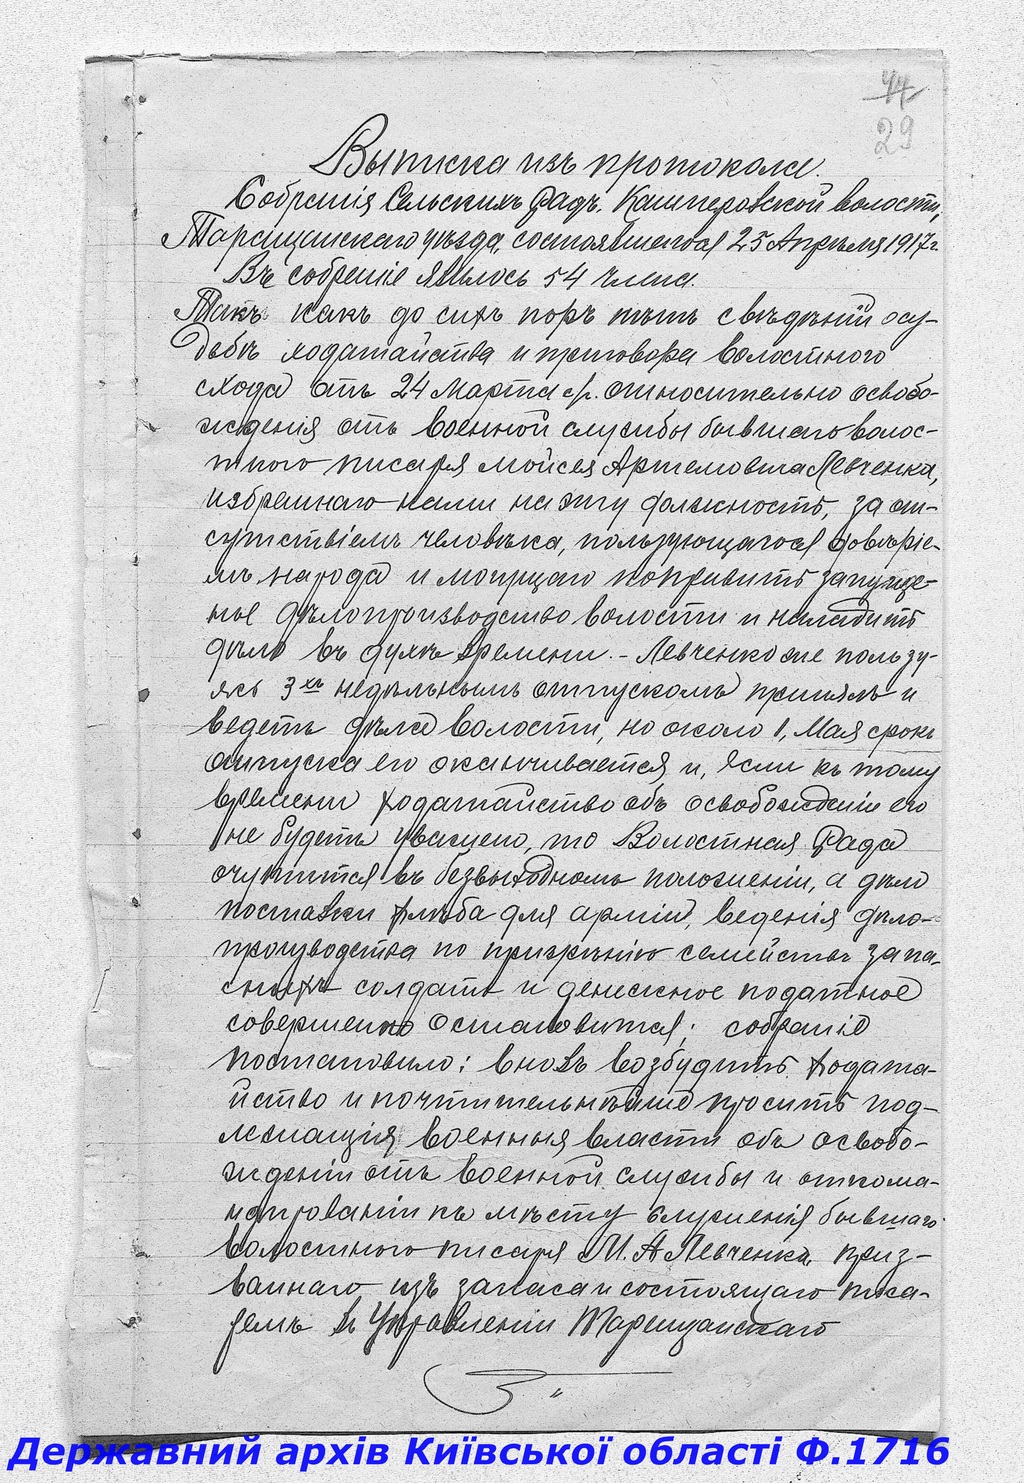 44
29
Выписка изъ протокола.
Собранія Сельскихъ Радъ. Кашперовской волости,
Таращанскаго уѣзда, состоявшегося 25 Апрѣля 1917 г.
Въ собраніе явилось 54 члена.
Такъ какъ до сихъ поръ нѣтъ свѣдѣній о су-
дьбѣ ходатайства и приговора волостного
схода отъ 24 марта с/г. относительно освобо-
жденія отъ военной службы бывшаго волос-
тного писаря Мойсея Артемовича Левченка,
избраннаго нами на эту должность, за от-
сутствіемъ человѣка, пользующагося довѣріе-
мъ народа и могущаго поправить запуще-
ное дѣлопроизводство волости и наладить
дѣло въ духѣ времени. - Левченко же пользу-
ясь 3хъ недѣльнымъ отпускомъ принялъ и
ведетъ дѣла волости, но около 1, Мая срокъ
отпуска его оканчивается и, если къ тому
времени ходатайство объ освобожденіи его
не будетъ уважено, то Волостная Рада
очутится въ безвыходномъ положеніи, а дѣло
поставки хлѣба для арміи, веденія дѣло-
производства по призрѣнію семействъ запа-
сныхъ солдатъ и денежное податное
совершенно остановится; собраніе
постановило: вновь возбудить ходата-
йство и почтительнѣйше просить под-
лежащія военныя власти объ освобо-
жденіи отъ военной службы и откома-
ндированіи къ мѣсту служенія бывшаго
волостного писаря М. А Левченка, приз-
ваннаго изъ запаса и состоящаго писа-
ремъ въ Управленіи Таращанскаго
Державний архів Київської області Ф.1716